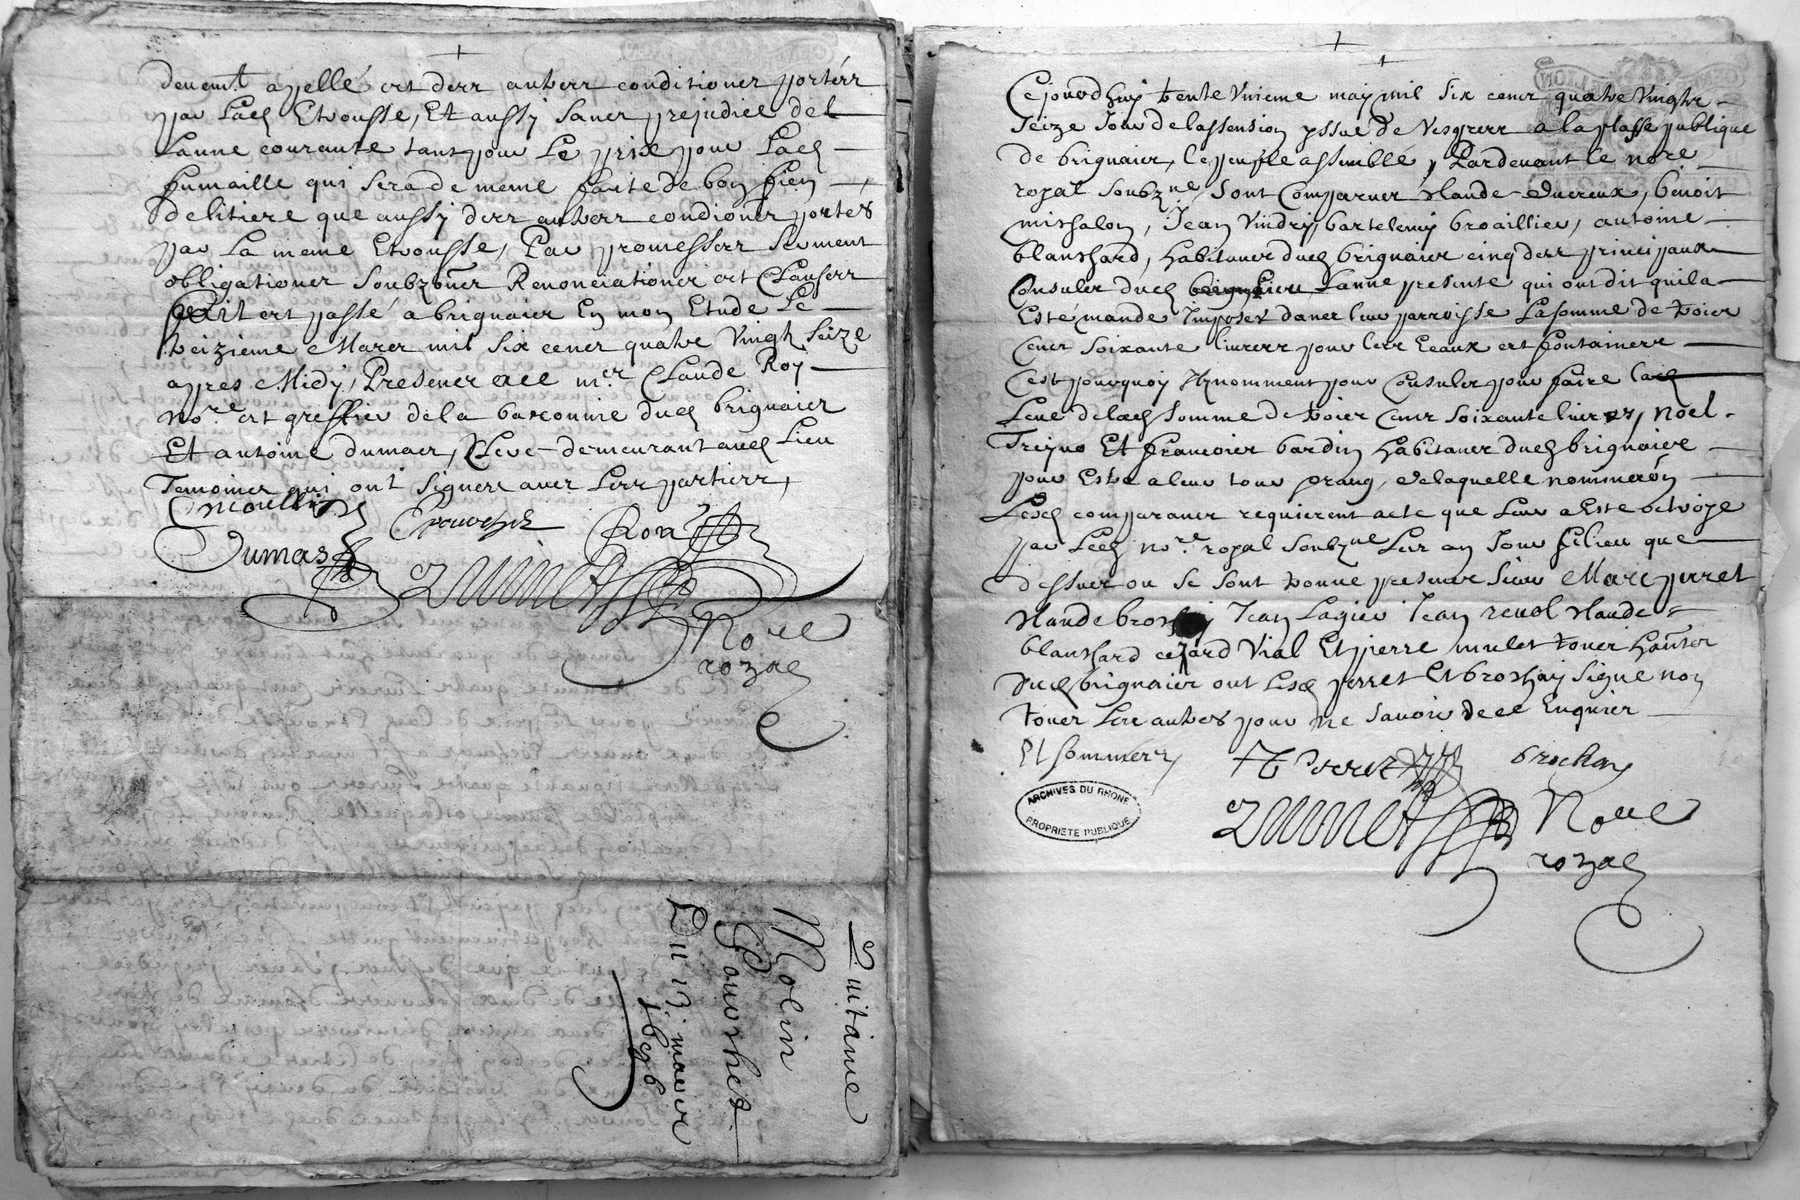 deuemt apellé et des autres conditiones portées
par lad Etrousse, Et aussy sans prejudice de l
anne courante tant pour le prix pour lad
fumaille qui sera de meme faite de bon fien
delitiere que aussy des autres condiones portes
par la meme Etrousse, Par promesses serment
obligationes soubzones Renonciationes et Clauses
fait et passé a brignaies En mon Etude le
treizieme Mars mil six cens quatre Vingt seize
apres Midy, Presences de mer Claude Roy
nore et greffier de la baronnie dud brignaies
Et antoine dumas, Cleve demeurant aud lieu
Temoines qui ont signere avec les parties,
Dumas
Nore
royal
Quitance
Molin
Pourchet
Du 13 mars
1696
Cejourdhuy trente Vnieme may mil six cens quatre Vingts
seize Jour de lassension yssue de Vespres a la plasse publique
de brignaies, le peuple assemblé, Pardevant le nore
royal soubzne, sont Comparues Claude Duereux, benoit
missalon, Jean Vindry, bartelemy broaillier, antoine
blanchard, habitans dud brignaies cinq des principaux
Consules dud lanne presente qui ont dit quila
Esté mande Imposer dans leur parroisse la somme de trois
Cens soixante livres pour les Eaux et fontaines
Cest pourquoy Ilz nomment pour Consules pour faire lad
Leve delad somme de trois Cens soixante livres, noel
Treyno Et francois bardin habitans dud brignaies
pour Estre a leur tour prang, delaquelle nomineron
Lesd comparans requierent acte que leur a Esté octroye
par led nore royal soubzne les an Jour filieu que
dessues ou se sont trouve presences sieur Marc perret
Claude broshay Jean Lagier Jean revol Claude
blanchard cezard Vial Et pierre mulet toues habites
dud brignaies ont lesd perret Et broshay signe non
toues les autres pour ne savoir de ce Enquies
Et sommeez
Perret
brochay
Nore
royal
ARCHIVES DU RHONE
PROPRIETE PUBLIQUE